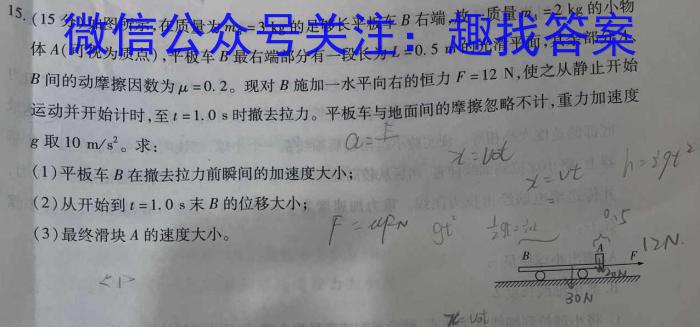 15. (15分)如图所示,在质量为m =3 kg的足够长平板车B右端放一质量m =2 kg的小物
微信公众号关注：趣找答案
体A(可视为质点),平板车B最右端部分有一段长为L=0.5 m的光滑平面,
B间的动摩擦因数为μ=0.2。现对B施加一水平向右的恒力F=12 N,使之从静止开始
运动并开始计时,至t=1.0 s时撤去拉力。平板车与地面间的摩擦忽略不计,重力加速度
g取10 m/s²。求:
(1)平板车B在撤去拉力前瞬间的加速度大小;
(2)从开始到t=1.0 s末B的位移大小;
(3)最终滑块A的速度大小。
x=v₀t
x=vt
F=μFN
gt²
0.5
12N
B
A
F
30N
<1>
v₀t